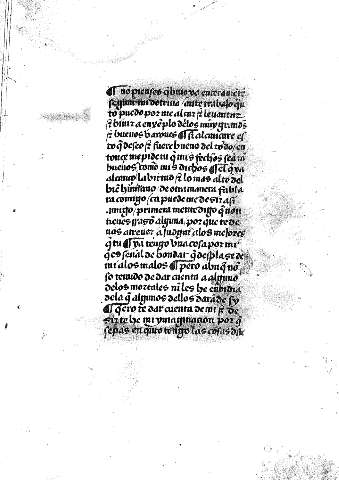 ¶ no pienses q̃ biuo yo enteramẽte
segun mi dotrina ante trabajo quã
to puedo por me alçar ⁊ leuantar
⁊ biuir a enxẽplo delos muy grandes
⁊ buenos varones ¶ si alcançare es
to q̃ deseo ⁊ fuere bueno del todo/en
tonçe me pidetu q̃ mis fechos seã ta
buenos como mis dichos ¶ el q̃ ya
alcanço la birtud ⁊ lo mas alto del
biẽ humano de otra manera fabla
ra comigo/ca puede me dezir assi
amigo/primera mente digo q̃ non
tienes rrazõ alguna por que te de
uas atreuer a judgar alos mejores
q̃ tu ¶ ya tengo vna cosa por mi
q̃ es señal de bondat q̃ desplaze de
mi alos malos ¶ pero abn q̃ nõ
so tenudo de dar cuenta a alguno
delos mortales ni les he enbidia
dela q̃ algunos dellos daran de sy
¶ q̃ero te dar cuenta de mi ⁊ de
zir te he mi ymaginaçion por q̃
sepas en quãto tengo las cosas del